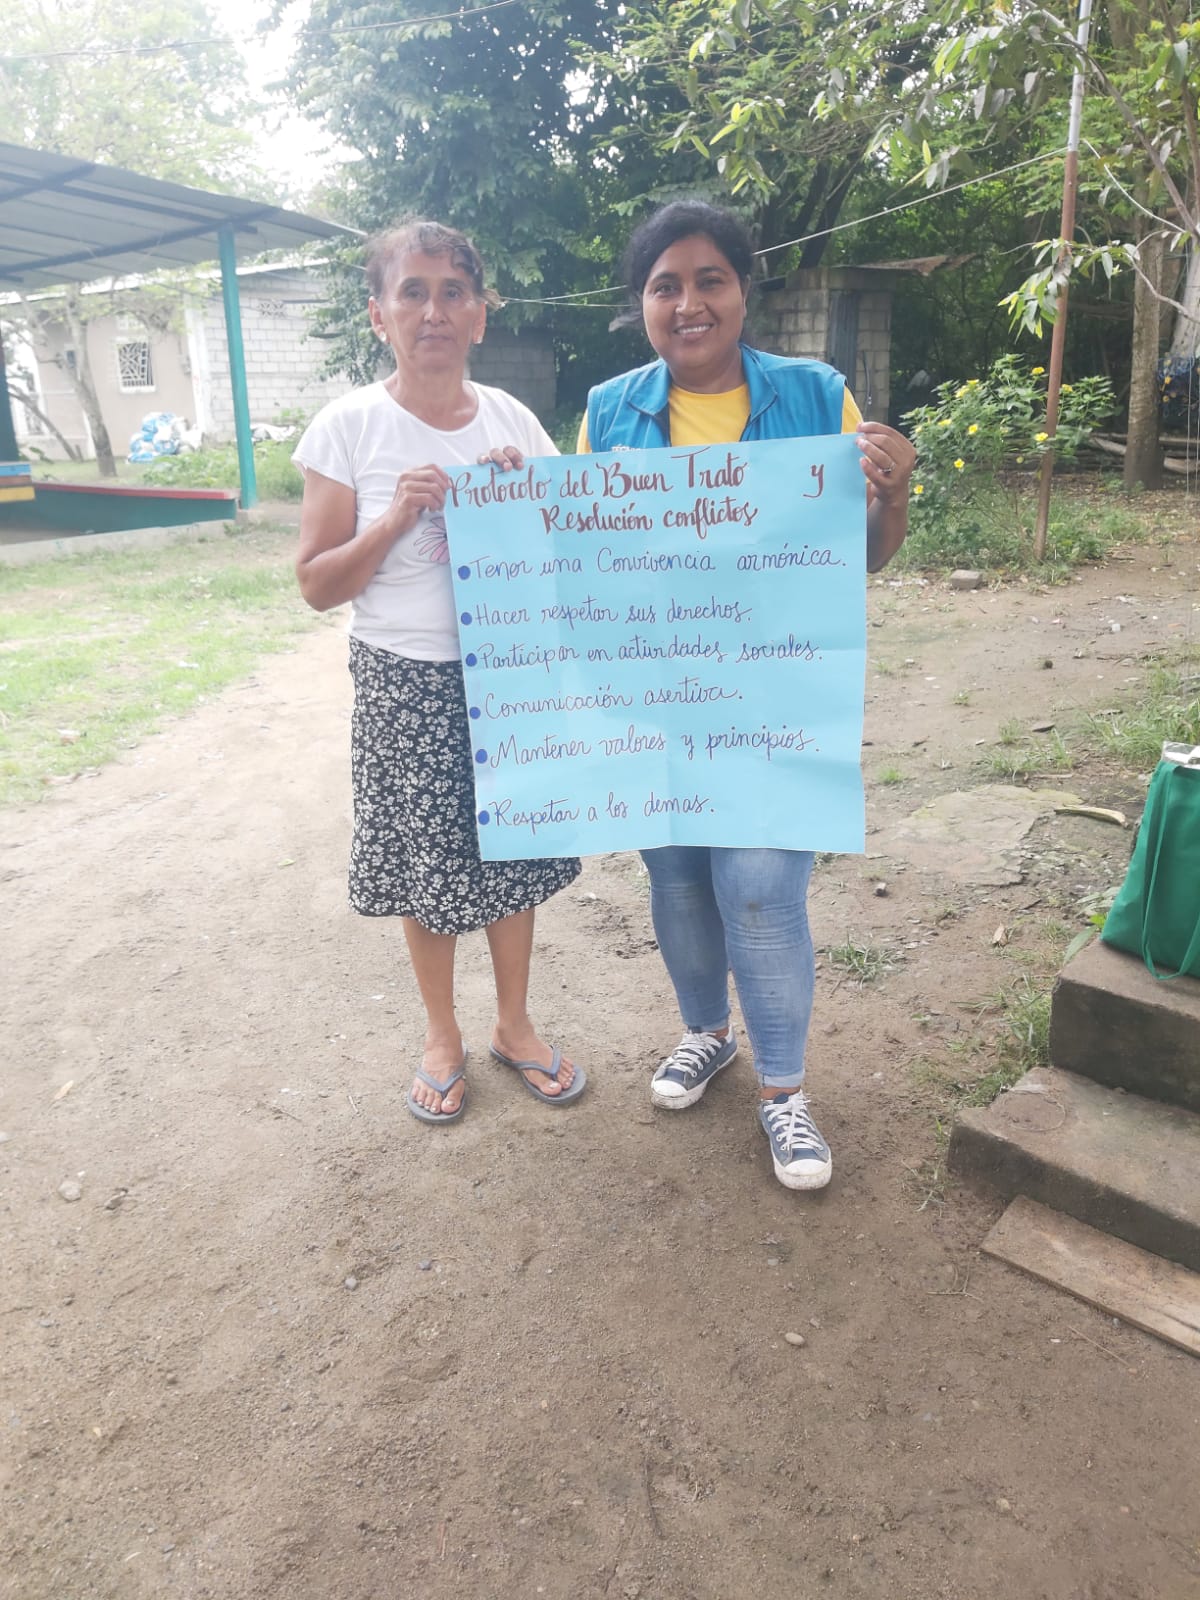 Protocolo del Buen Trato y
Resolución conflictos
Tener una Convivencia armónica.
Hacer respetar sus derechos.
Participar en actividades sociales.
Comunicación asertiva.
Mantener valores y principios.
Respetar a los demas.